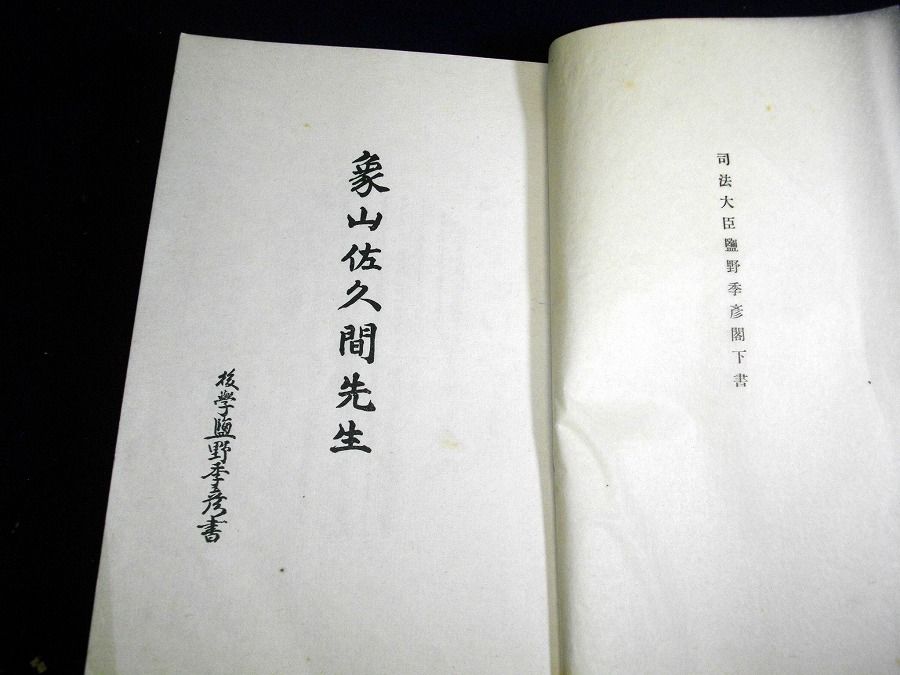 司法大臣鹽野季彥閣下書
象山佐久間先生
後學鹽野季彥書